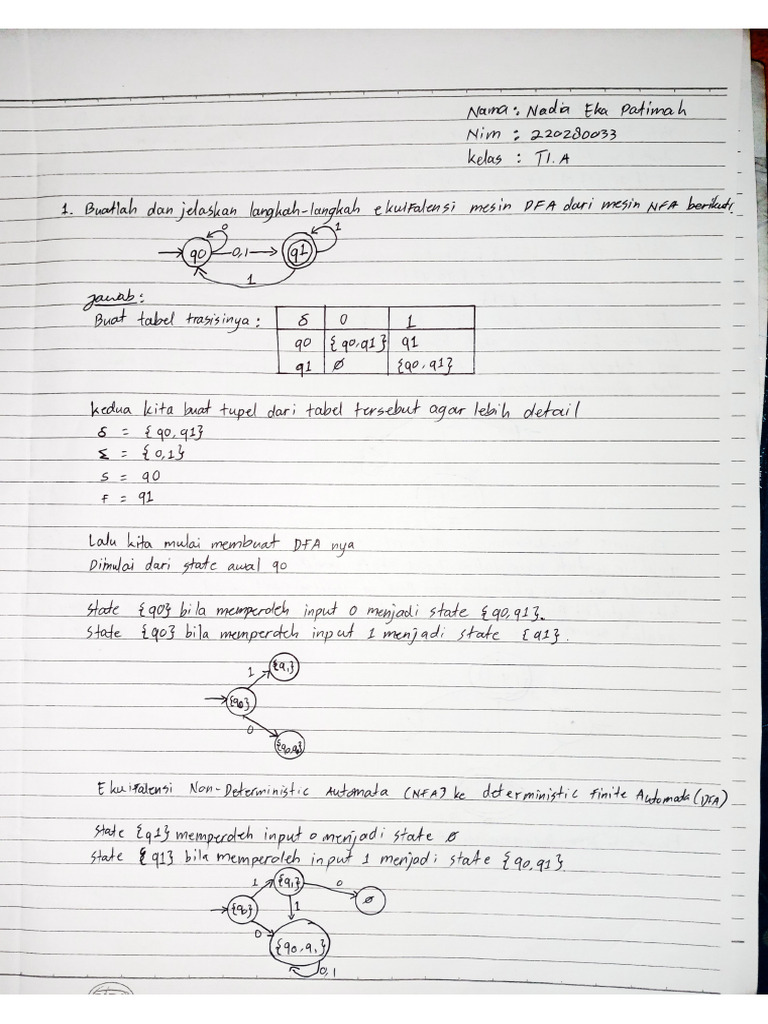 Nama : Nadia Eka Patimah
Nim : 220280033
Kelas : TI.A
1. Buatlah dan jelaskan langkah-langkah ekuifalensi mesin DFA dari mesin NFA berikut!
0 1
q0 0,1 q1
1
Jawab :
Buat tabel trasisinya :
δ 0 1
q0 {q0,q1} q1
q1 ∅ {q0,q1}
Kedua kita buat tupel dari tabel tersebut agar lebih detail
δ = {q0,q1}
Σ = {0,1}
S = q0
F = q1
Lalu kita mulai membuat DFA nya
Dimulai dari state awal q0
State {q0} bila memperoleh input 0 menjadi state {q0,q1}.
State {q0} bila memperoleh input 1 menjadi state {q1}.
1 {q1}
{q0}
0
Ekuifalensi Non-Deterministic Automata (NFA) ke deterministic Finite Automata (DFA)
State {q1} memperoleh input 0 menjadi state ∅
State {q1} bila memperoleh input 1 menjadi state {q0,q1}
1 {q1} 0
1 ∅
0
{q0,q1}
0,1